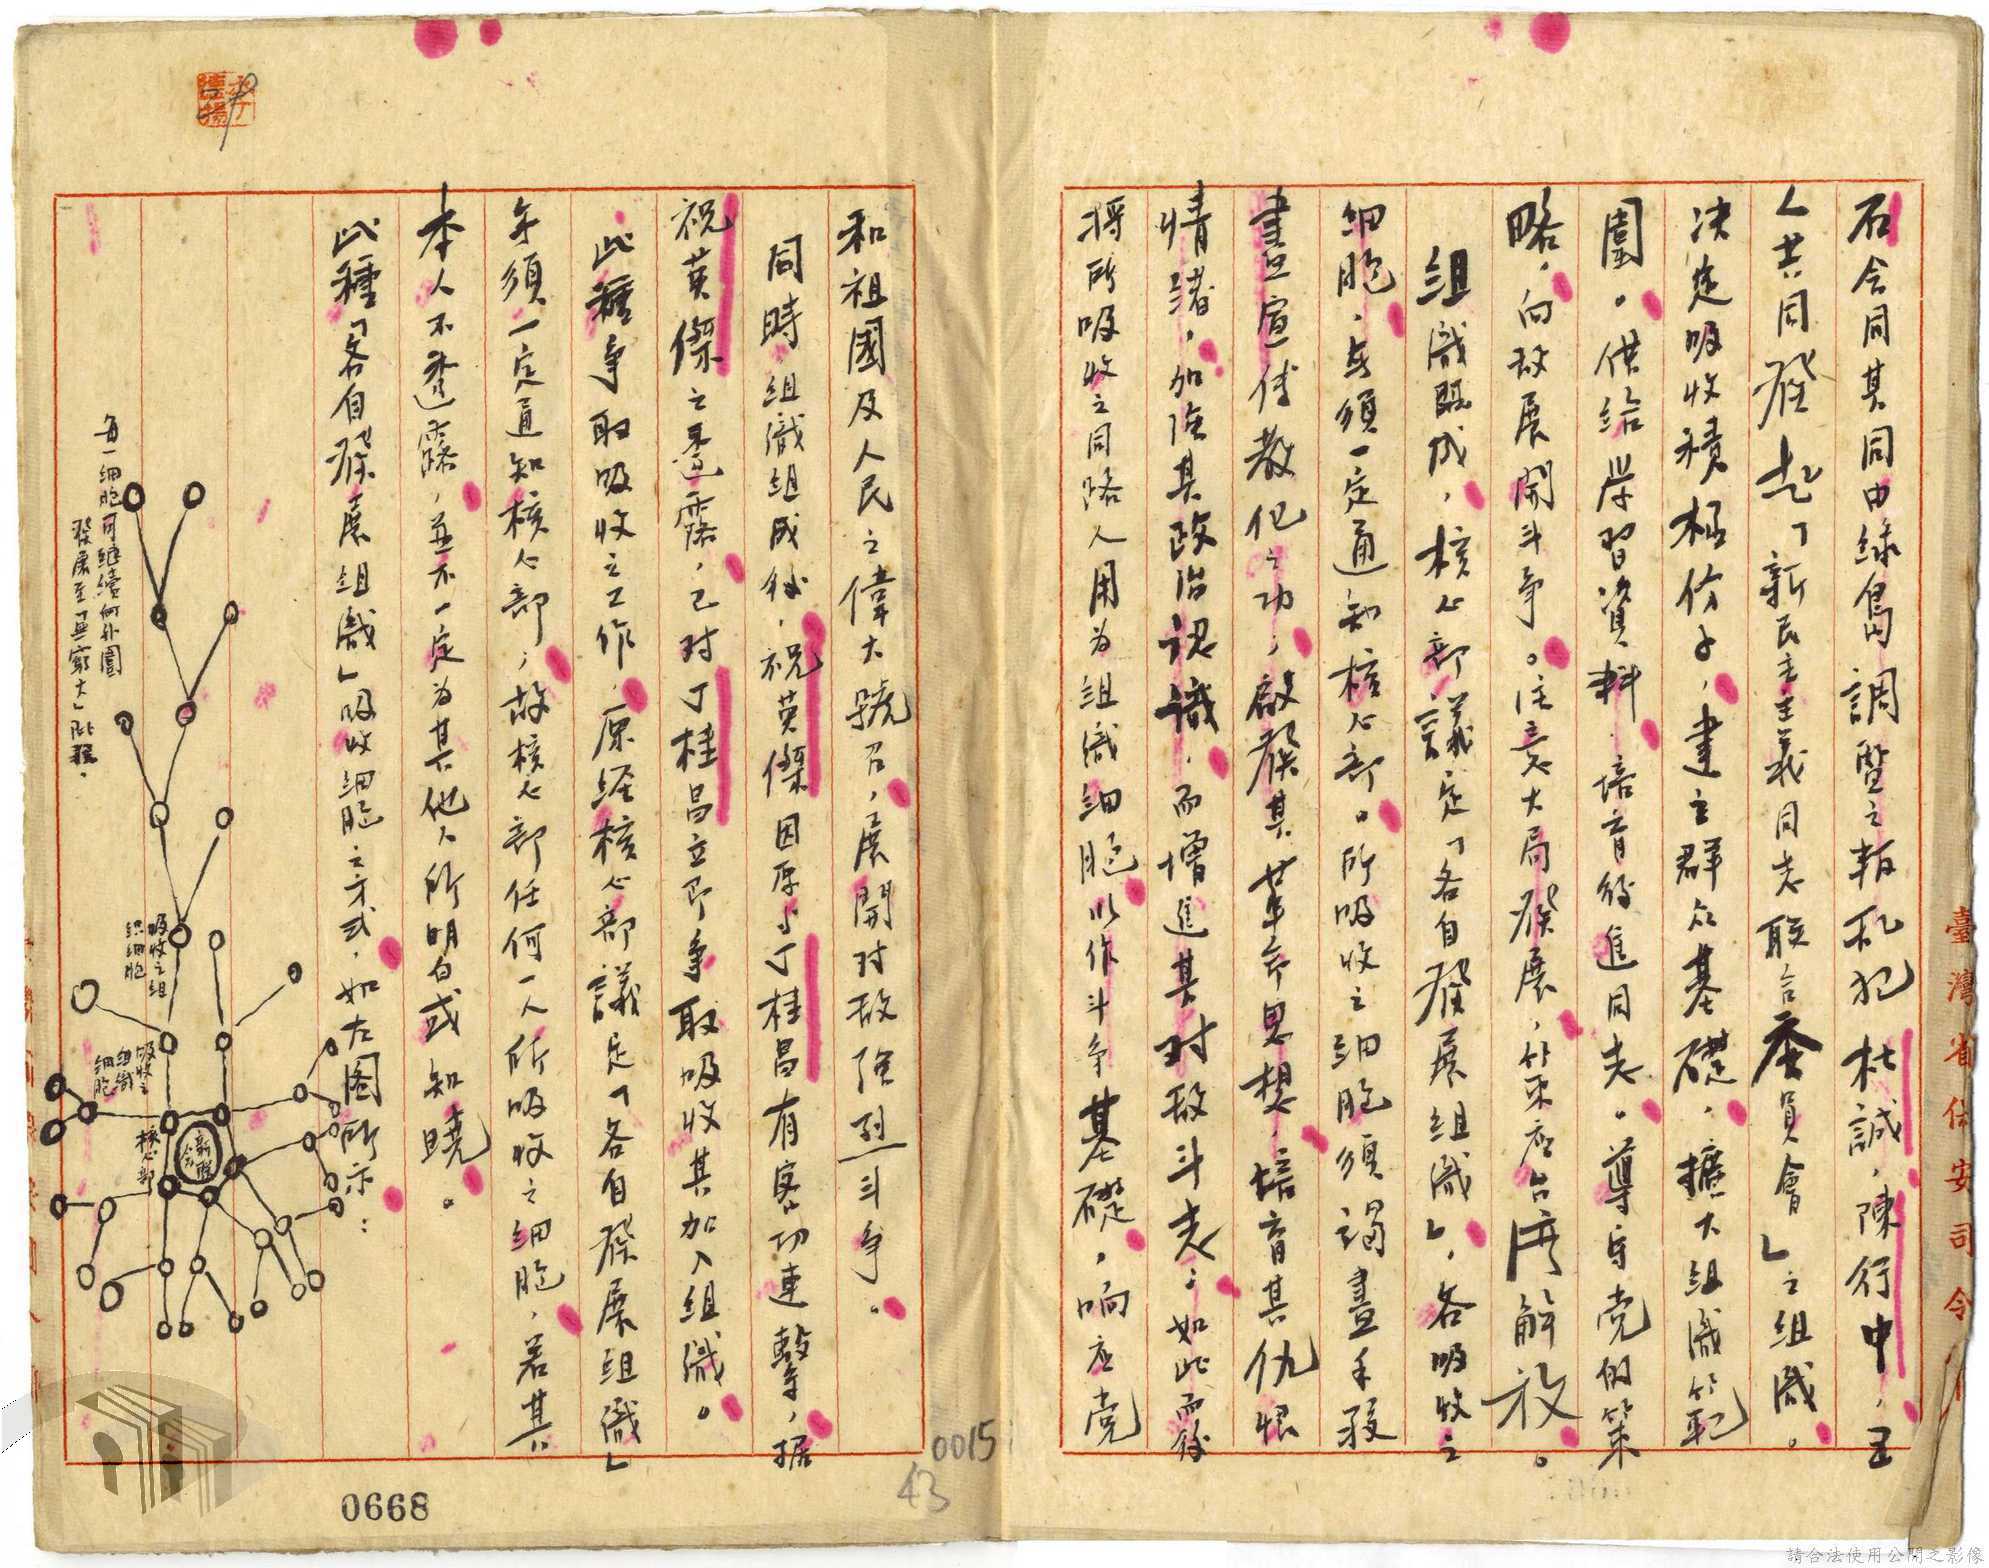 石会同其同由綠島調暨之叛犯杜誠，陳行中，五
人共同發起「新民主主義同志联合委員會」之組織。
决定吸收積極份子，建立群众基礎，擴大組織範
圍。供給学習資料，培育後進同志。導守党的策
略，向敌展開斗争。注意大局發展，策应台湾解放。
組織既成，核心部議定「各自發展組織」，各吸收之
細胞，無須一定通知核心部。所吸收之細胞須竭盡手段
盡量宣传教化之功，啟發其革命思想，培育其仇恨
情諸，加強其政治認識，而增進其对敌斗志；如此而後
将所吸收之同路人用为組織細胞以作斗争基礎，响应党
和祖國及人民之偉大號召，展開对敌強烈斗争。
同時，組織組成後，祝英傑因原与丁桂昌有密切連繫，据
祝英傑之透露，已对丁桂昌立即争取吸收其加入組織。
此種争取吸收之工作，原经核心部議定「各自發展組織」
无須一定通知核心部，故核心部任何一人所吸收之細胞，若其
本人不透露，並不一定为其他人所明白或知曉。
此種「各自發展組織」吸收細胞之方式，如左图所示：
每一細胞可継續向外圍
發展至「無窮大」此狠.
吸收之組
织細胞
吸收之
組織
細胞
核心部
新联
会
0668
0015
43
臺灣省保安司令
請合法使用公開之影像